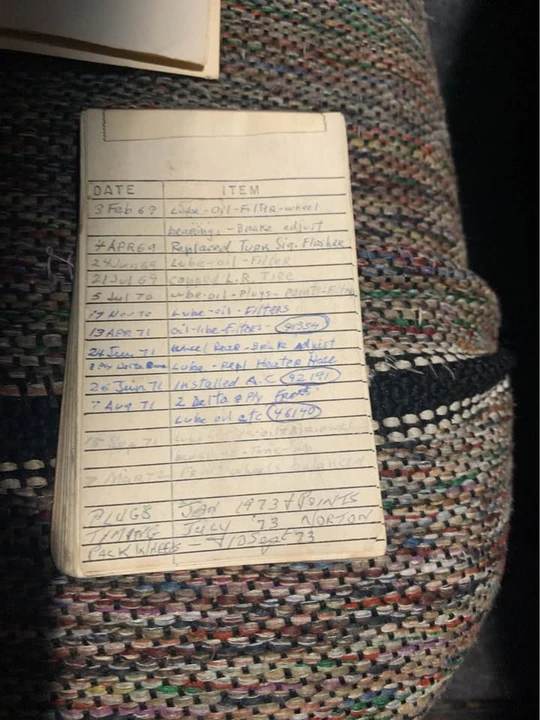 DATE ITEM
3 Feb 69 Lube-Oil-Filter-wheel
bearings-Brake adjust
4 APR 69 Replaced Turn Sig. Flasher
24 Jun 69 Lube-oil-Filter
21 Jul 69 capped L.R. Tire
5 Jul 70 Lube-oil-Plugs-Points-Filter
17 Nov 70 Lube-oil-FILTERS
13 APR 71 Oil-lube-Filters-
24 Jun 71 Wheel Bear-Brake Adjust
8 Ply Delta Lube-Repl Heater Hose
26 Jun 71 Installed A.C (42191)
7 Aug 71 2 Delta 8 Ply Front
Lube oil etc (46140)
15 Sep 71
Tune-up
7 Mar 72 Front wheels balanced
PLUGS JAN 1973 + POINTS
TIMING JULY '73 NORTON
PACK WHEELS - 10 Sept 73